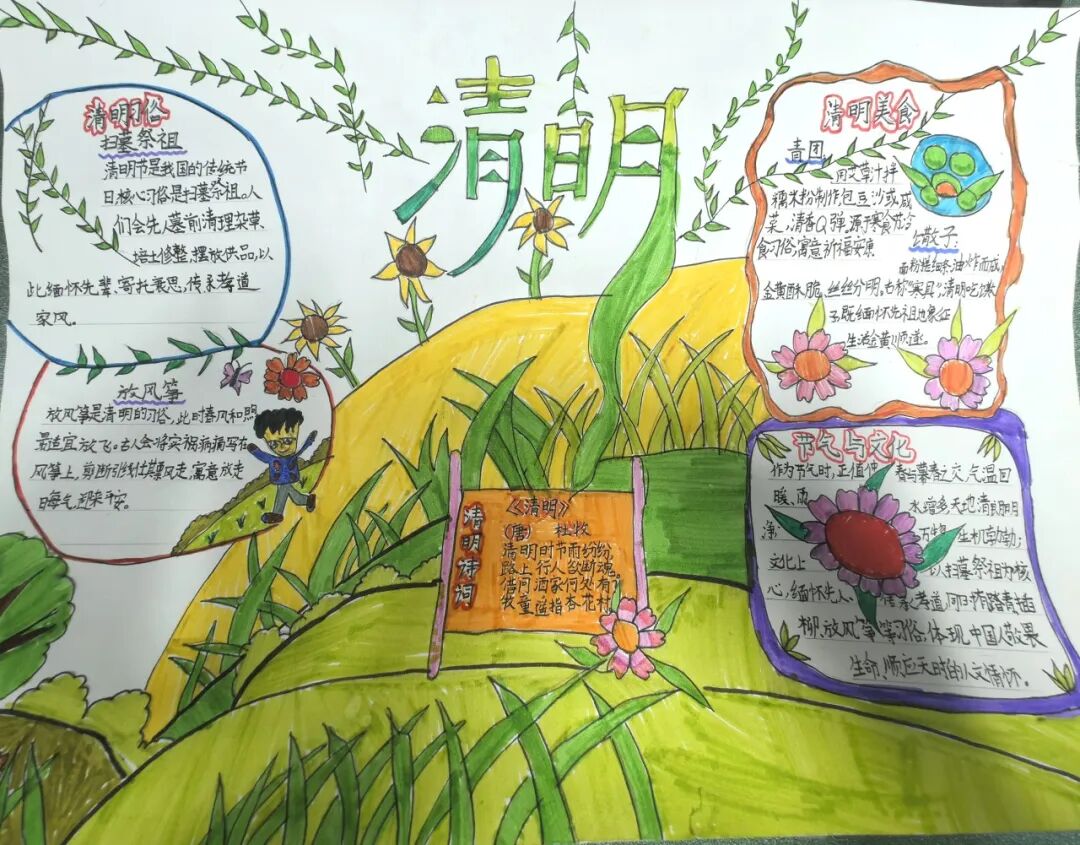 清明
清明习俗
扫墓祭祖
清明节是我国的传统节
日核心习俗是扫墓祭祖。人
们会先人墓前清理杂草、
培土修整,摆放供品,以
此缅怀先辈、寄托哀思,传承孝道
家风。
放风筝
放风筝是清明的习俗,此时春风和煦
最适宜放飞。古人会将灾祸病痛写在
风筝上,剪断引线让其随风走,寓意放走
晦气迎来平安。
清明诗词
《清明》
(唐) 杜牧
清明时节雨纷纷,
路上行人欲断魂。
借问酒家何处有,
牧童遥指杏花村
清明美食
青团
用艾草汁拌
糯米粉制作,包豆沙或咸
菜,清香Q弹,源于寒食节冷
食习俗,寓意祈福安康
馓子:
面粉搓细条油炸而成,
金黄酥脆,丝丝分明,古称"寒具";清明吃馓
子既缅怀先祖也象征
生活金黄顺遂。
节气与文化
作为节气时,正值仲 春与暮春之交,气温回
暖、雨 水增多天地清明
净 万物 生机勃勃;
文化上 以扫墓祭祖为核
心,缅怀先人、 传承孝道,同时踏青插
柳、放风筝等习俗,体现中国人敬畏
生命,顺应天时的人文情怀。